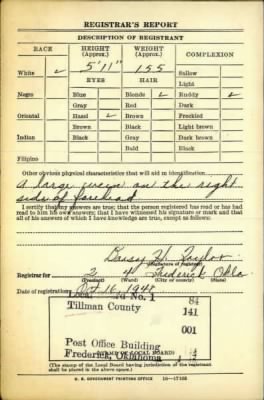 REGISTRAR'S REPORT
DESCRIPTION OF REGISTRANT
RACE HEIGHT (Approx.) WEIGHT (Approx.) COMPLEXION
5'11" 155
White ✓ Sallow
EYES HAIR Light
Negro Blue Blonde ✓ Ruddy ✓
Gray Red Dark
Oriental Hazel ✓ Brown Freckled
Brown Black Light brown
Indian Black Gray Dark brown
Bald Black
Filipino
Other obvious physical characteristics that will aid in identification
A large on the right
side of forehead
I certify that my answers are true; that the person registered has read or has had
read to him his own answers; that I have witnessed his signature or mark and that
all of his answers of which I have knowledge are true, except as follows:
H. Taylor
(Signature of registrar)
Registrar for 2 4 Frederick Okla
(Precinct) (Ward) (City or county) (State)
Date of registration Oct 16 1940
Local No. 1 84
Tillman County 141
001
Post Office Building
Frederick, Oklahoma
(STAMP OF LOCAL BOARD)
(The stamp of the Local Board having jurisdiction of the registrant
shall be placed in the above space.)
U. S. GOVERNMENT PRINTING OFFICE 16—17105